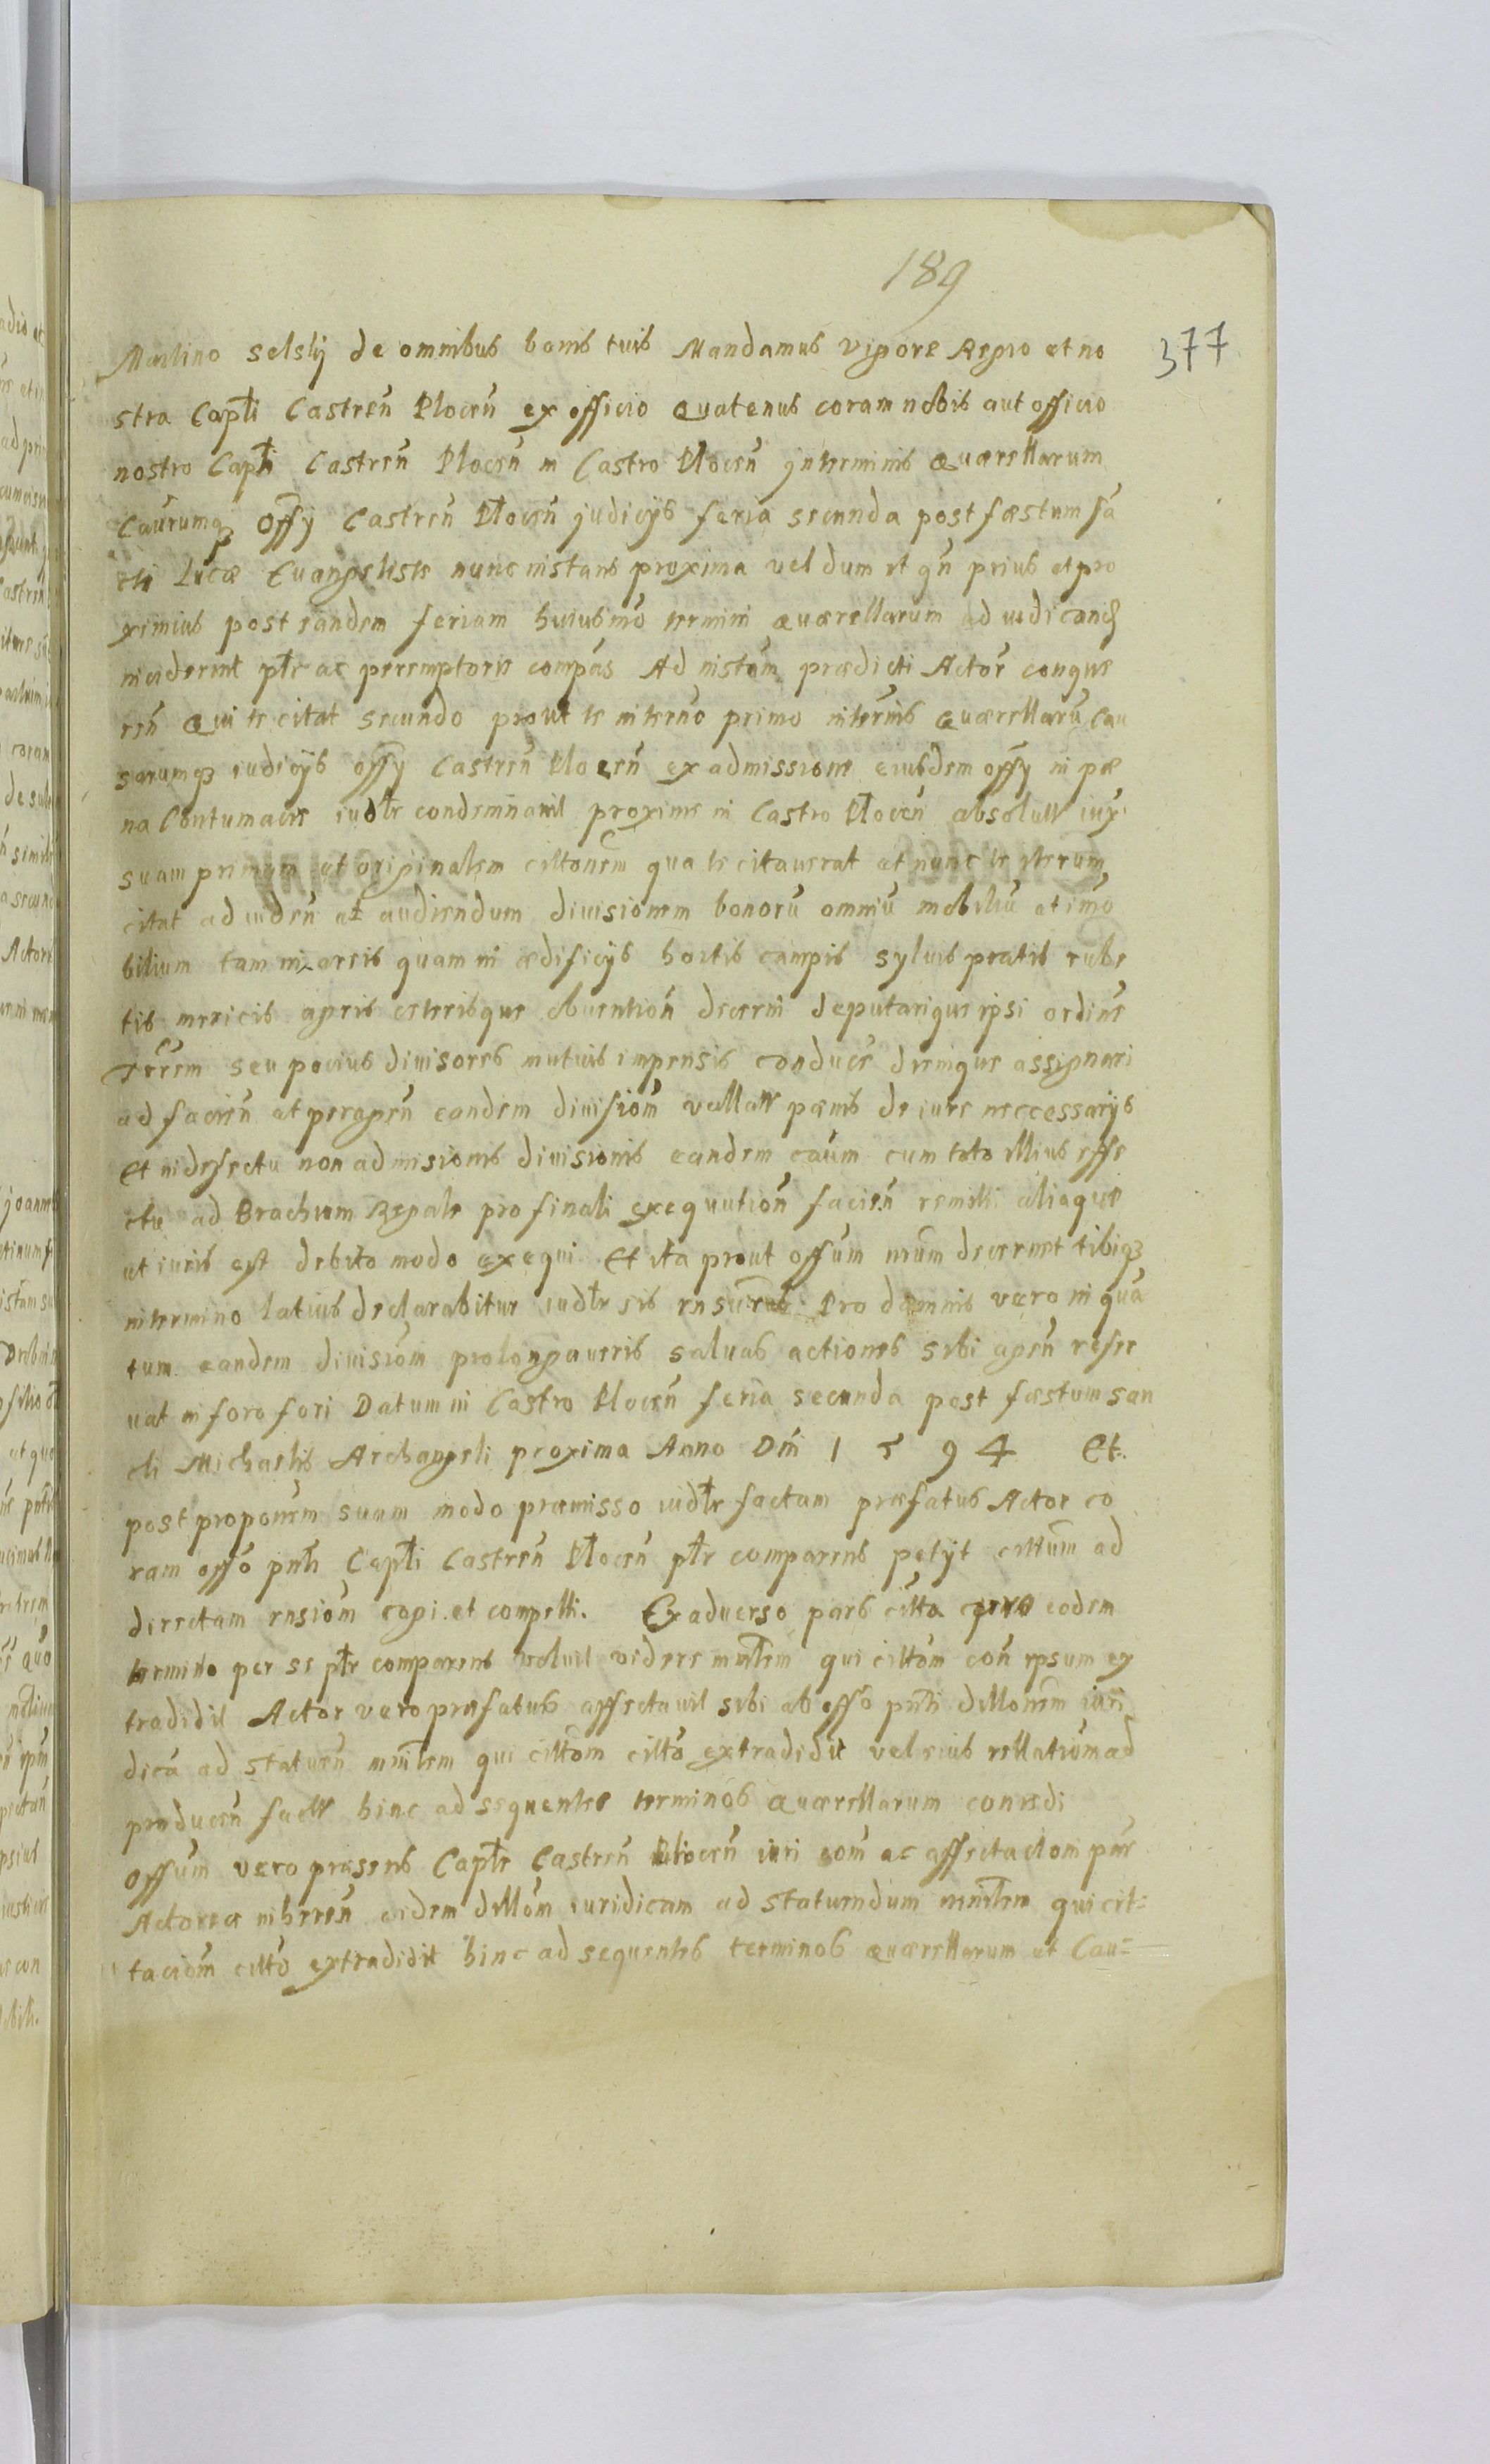 189
377
Martino selskj de omnibus bonis tuis Mandamus vigore Regio et no
stra Caplłi Castren̄ Plocen̄ ex officio Quatenus coram nobis aut officio
nostro Caplłi Castren̄ Plocen̄ in Castro Plocen̄ jnterminis Quærellarum
Caūrumq3 Offy Castren̄ Plocen̄ judicijs feria secunda post fæstum sā
cti Lucæ Euangeliste nunc instans proxima vel dum et qn̄ prius et pro
ximius post eandem feriam huiusmō termini quærellarum ad iudicand
inciderint płr ac peremptorie compās Ad instām prædicti Actor̄ conque
ren̄ Qui te citat secundo prout te intermō primo intermīs Quærellarū Cau
sarumq3 iudicijs offy Castren̄ Plocen̄ ex admissione eiusdem offy in pæ
na Contumacie iudłr condemnauit proxime in Castro Plocen̄ absolut̄ iux
suam primam et originalem cittonēm qua te citauerat et nunc te iterum
citat ad viden̄ at audiendum diuisionem bonorū omniū mobiliū et imō
bilium tam in areis quam in ædificijs hortis campis syluis pratis rube
tis mericis agris ceterisque obuention̄ decerni deputarique ipsi ordinē
rēem seu pocius diuisores mutuis impensis conducē denique assignari
ad facien̄ at peragen̄ eandem diuisiōm vallatt pænis de iure neccessarijs
Et indefectu non admisionis diuisionis eandem caūm cum toto illius effe
ctu ad Brachium Regale pro finali exequution̄ facien̄ remitti aliaque
ut iuris est debito modo exequi Et ita prout offūm nrūm decernet tibiq3
intermino latius declarabitur iudłr sis rnsūrus Pro damnis vero in qua
tum eandem diuisiōm prolongaueris saluas actiones sibi agen̄ reser
uat in foro fori Datum in Castro Plocen̄ feria secunda post fæstum san
cti Michaelis Archangeli proxima Anno Dn̄i 1 5 9 4 Et
post proponēm suam modo præmisso iudłr factam præfatus Actor co
ram offō pn̄ti Caplłi Castren̄ Plocen̄ płr comparens petijt cittūm ad
directam rnsiōm cogi et compelli. Ex aduerso pars citta eodem
termino per se płr comparens voluit videre mn̄łrem qui cittōm con̄ ipsum ex
tradidit Actor vero præfatus affectauit sibi ab offō pn̄ti dillonēm iuri
dicā ad statuen̄ mn̄łrem qui cittōm cittō extradidit vel eius rellatiōm ad
producen̄ fact̄ hinc ad sequentes terminos Quærellarum concedi
Offūm vero præsens Capłe Castren̄ Plocen̄ iuri cōm ac affectactōm pn̄s
Actorea inheren̄ eidem dillōm iuridicam ad statuendum mn̄łrem qui cit=
taciōm cittō extradidit hinc ad sequentes terminos quærellarum et Cau=